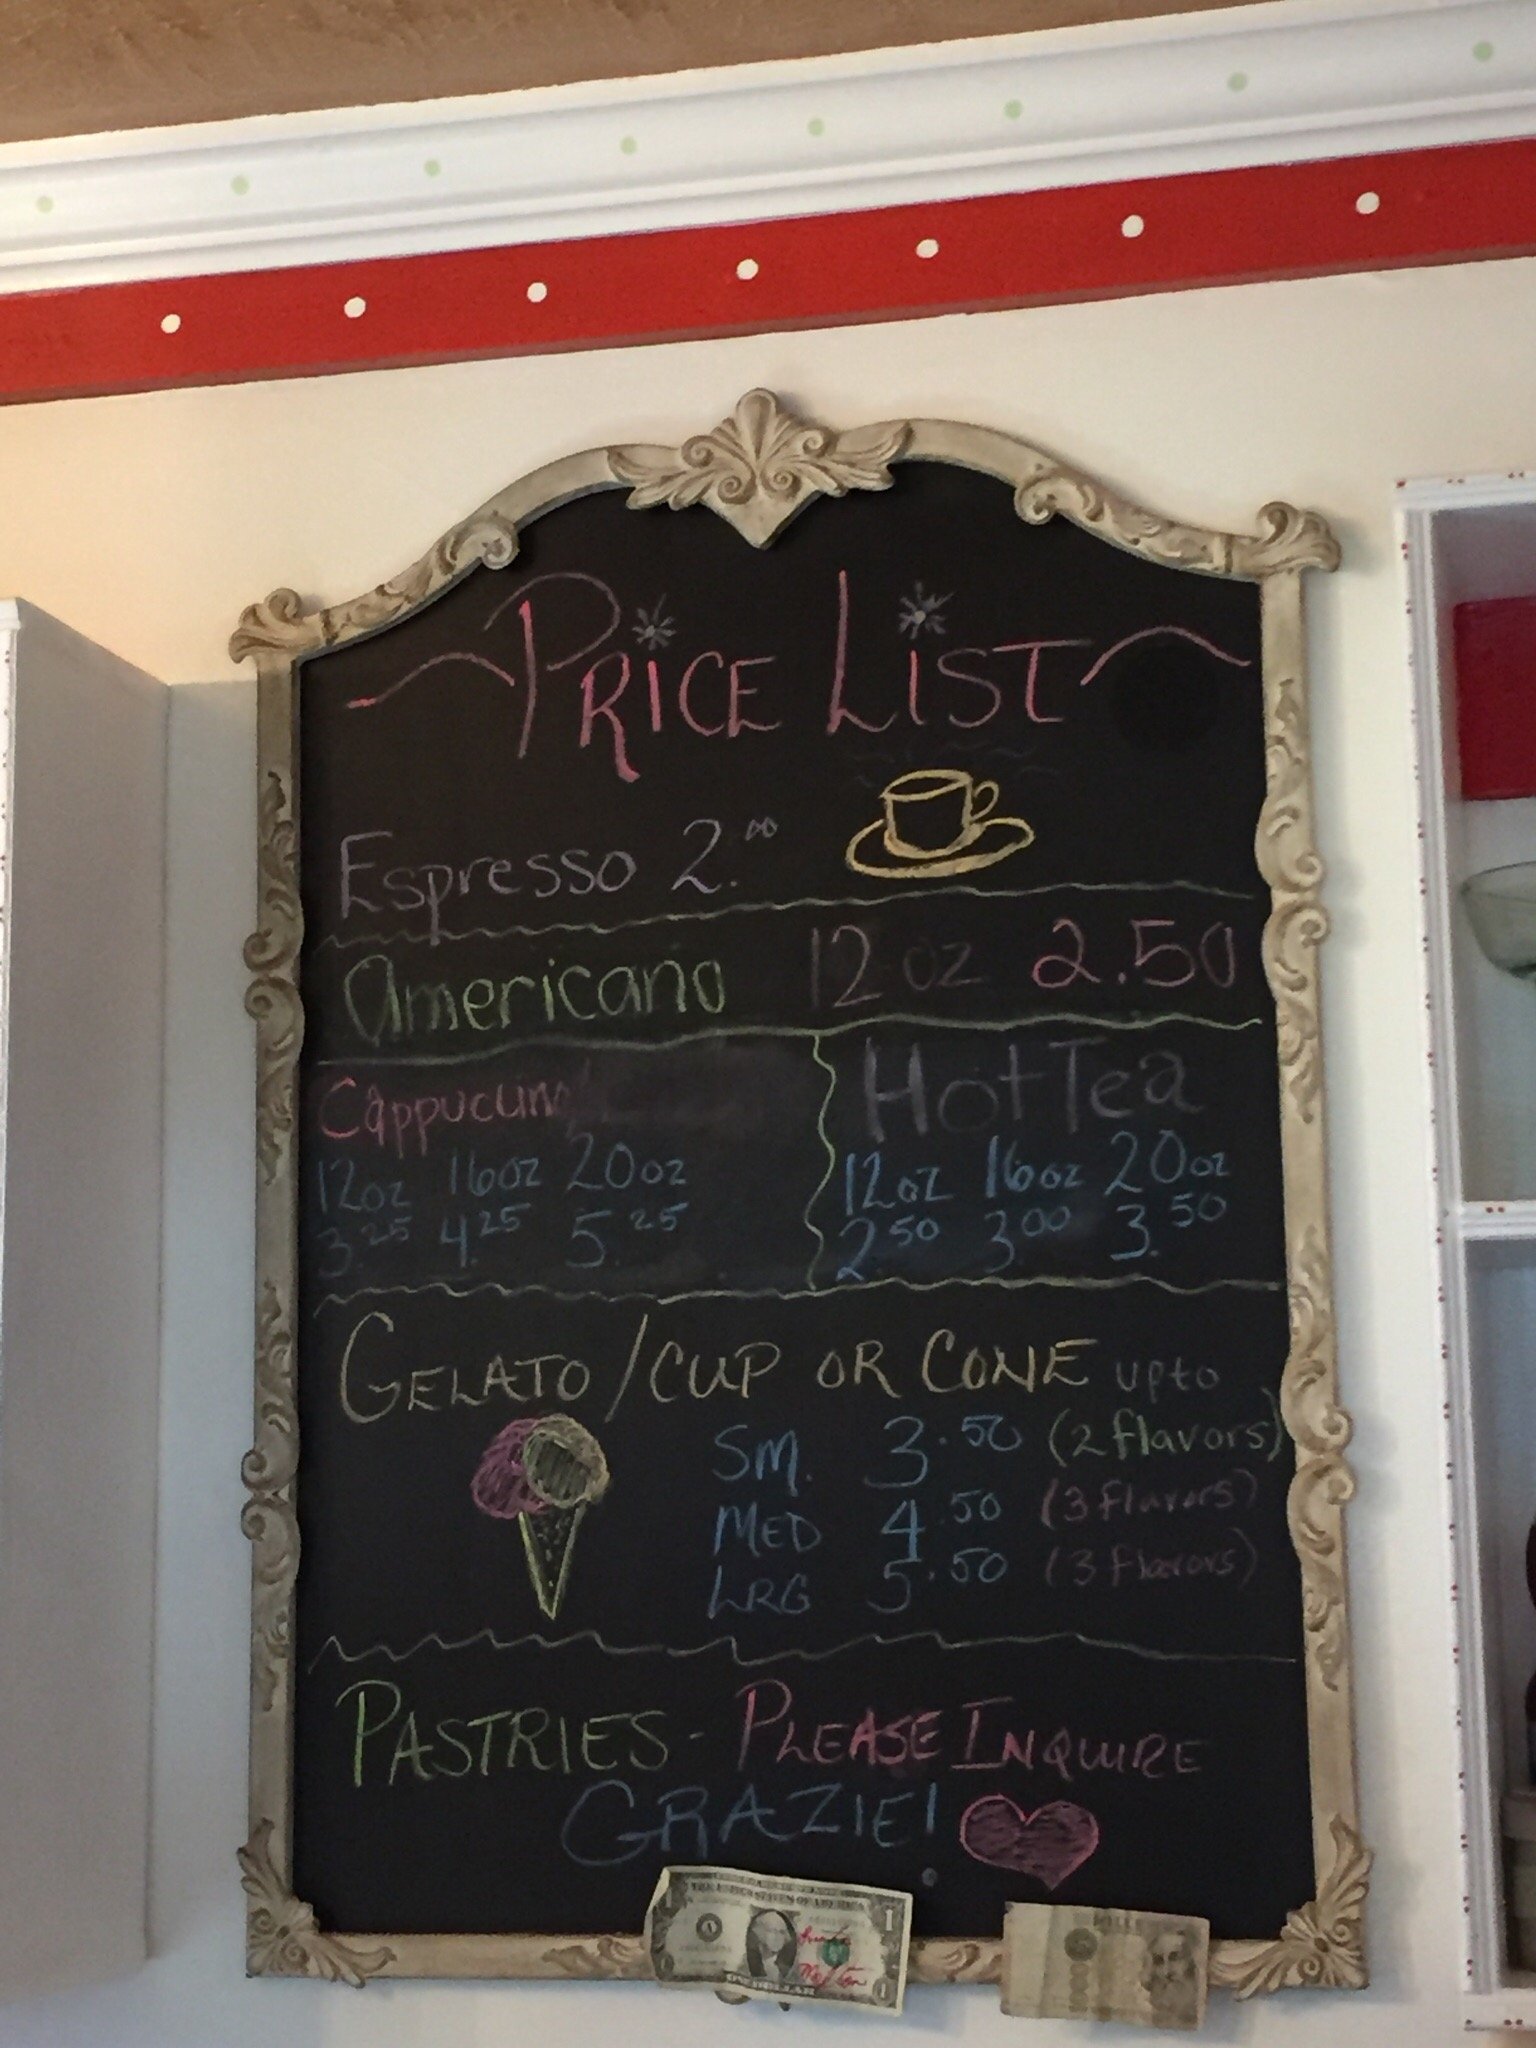 PRICE LIST
Espresso 2.00
Americano 12 oz 2.50
Cappuccin
12oz 16oz 20oz
3.25 4.25 5.25
Hot Tea
12oz 16oz 20oz
2.50 3.00 3.50
GELATO / CUP OR CONE upto
SM. 3.50 (2 flavors)
MED 4.50 (3 flavors)
LRG 5.50 (3 flavors)
PASTRIES - PLEASE INQUIRE
GRAZIE!
THE UNITED STATES OF AMERICA
ONE DOLLAR
1
1